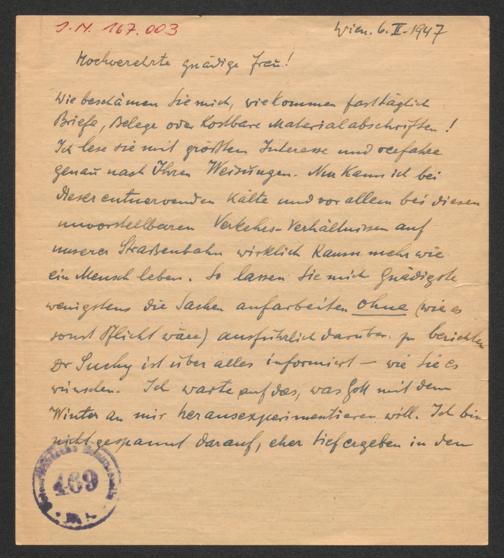 I.N. 167.003
Wien. 6.II.1947
Hochverehrte gnädige Frau!
Wie beschämen Sie mich, wie kommen fast täglich
Briefe, Belege oder kostbare Materialabschriften!
Ich lese sie mit größtem Interesse und verfahre
genau nach Ihren Weisungen. Nun kann ich bei
dieser entnervenden Kälte und vor allem bei diesen
unvorstellbaren Verkehrs-Verhältnissen auf
unserer Straßenbahn wirklich kaum mehr wie
ein Mensch leben. So lassen Sie mich Gnädigste
wenigstens die Sachen aufarbeiten ohne (wie es
sonst Pflicht wäre) ausführlich darüber zu berichten
Dr Suchy ist über alles informiert – wie Sie es
wünschen. Ich warte auf das, was Gott mit dem
Winter an mir herausexperimentieren will. Ich bin
nicht gespannt darauf, eher tief ergeben in den
469